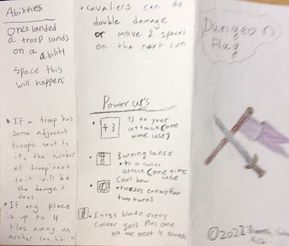 Abilities
Once landed
a troop lands
on a ability
space this
will happen:
• If a troop has
some adjacent
troops next
to it, the number
of troop next
to it will be
the damage it
does
• If any place
is up to 4
tiles away
number can hit it
• Cavaliers can do
double damage
or move 2 spaces
on the next turn
Power up's
+3
• +3 to your
attack (one
time use)
Burning lance
(one time
use
Cool bow
for two
turns
blade every
plus one
the next 4 rounds
Dungeon
Play
©2022